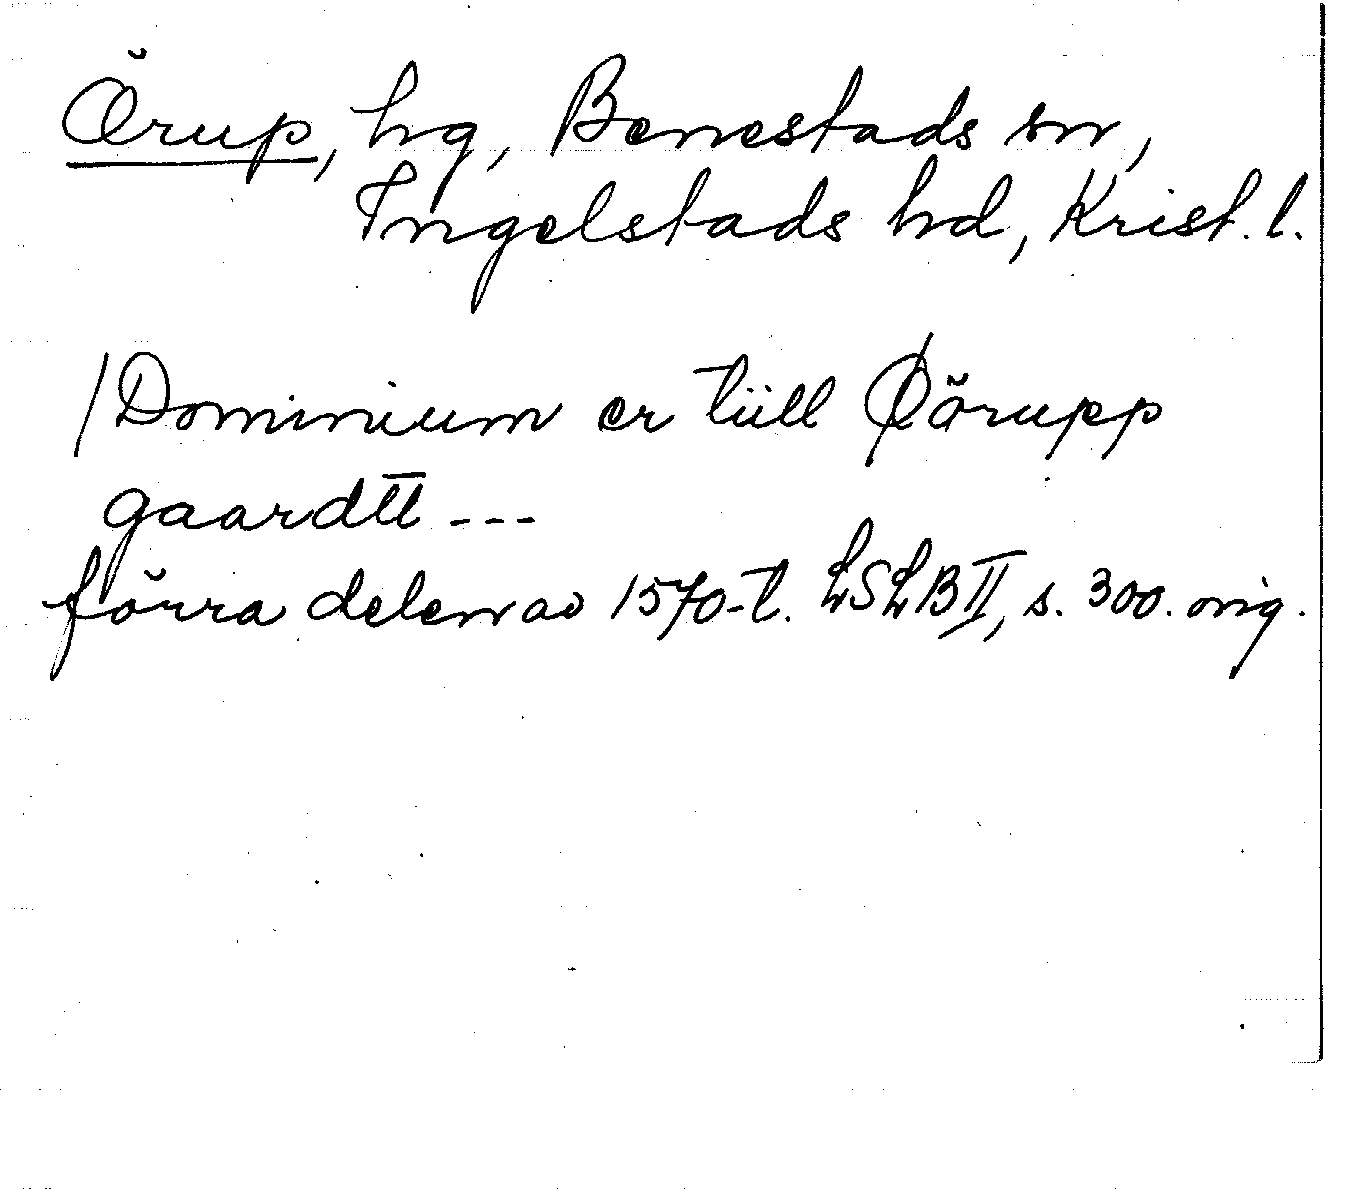 Örup, hg, Benestads sn,
Ingelstads hd, Krist. l.
/Dominium er tiill Øörupp
gaardtt ---
förra delen av 1570-t. LSLB II, s. 300. orig.